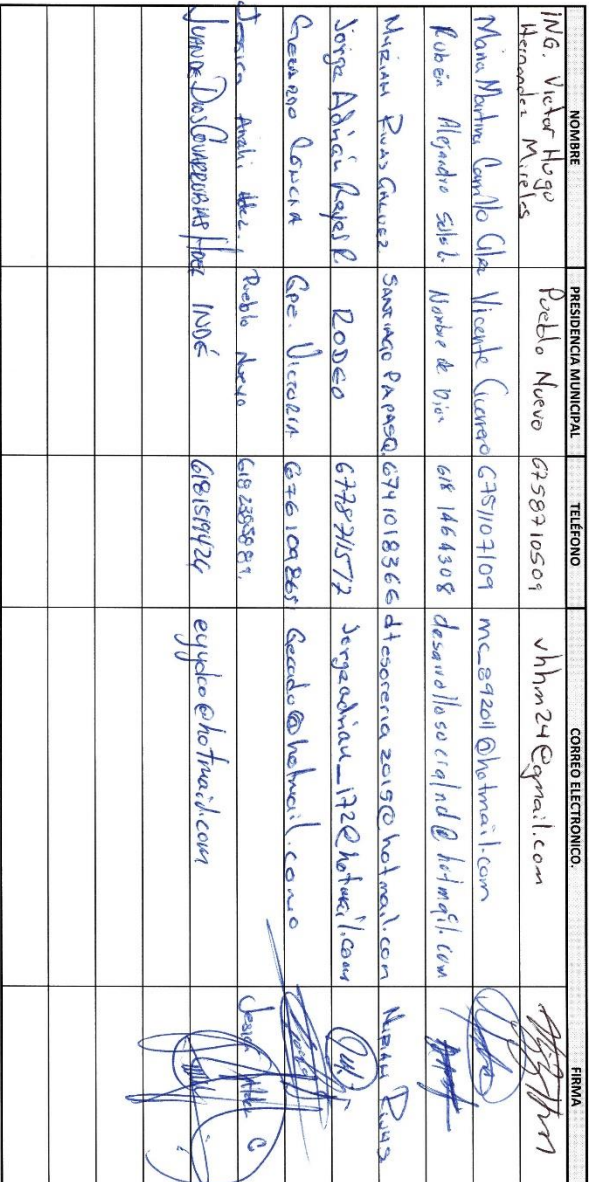 NOMBRE PRESIDENCIA MUNICIPAL TELÉFONO CORREO ELECTRONICO. FIRMA
ING. Victor Hugo Hernandez Mireles Pueblo Nuevo 6758710509 vhhm24@gmail.com
Maria Martina Carrillo Vicente Guerrero 6751107109 mc_892011@hotmail.com
Rubén Alejandro Solis Nombre de Dios 618 1464308 desarrollosocialnd@hotmail.com
MYRIAM RIVAS GALVEZ SANTIAGO PAPASQ. 6741018366 dtesoreria2019@hotmail.com MYRIAM RIVAS
Jorge Adrián Reyes R RODEO 6778711572 Jorgeadrian_172@hotmail.com
GERARDO CONCHA Gpe. VICTORIA 676109865
Jessica Anahi Hdez. Pueblo Nuevo 6182395889. Jessica Hdez C
JUAN DE DIOS COVARRUBIAS HDEZ INDÉ 6181519424